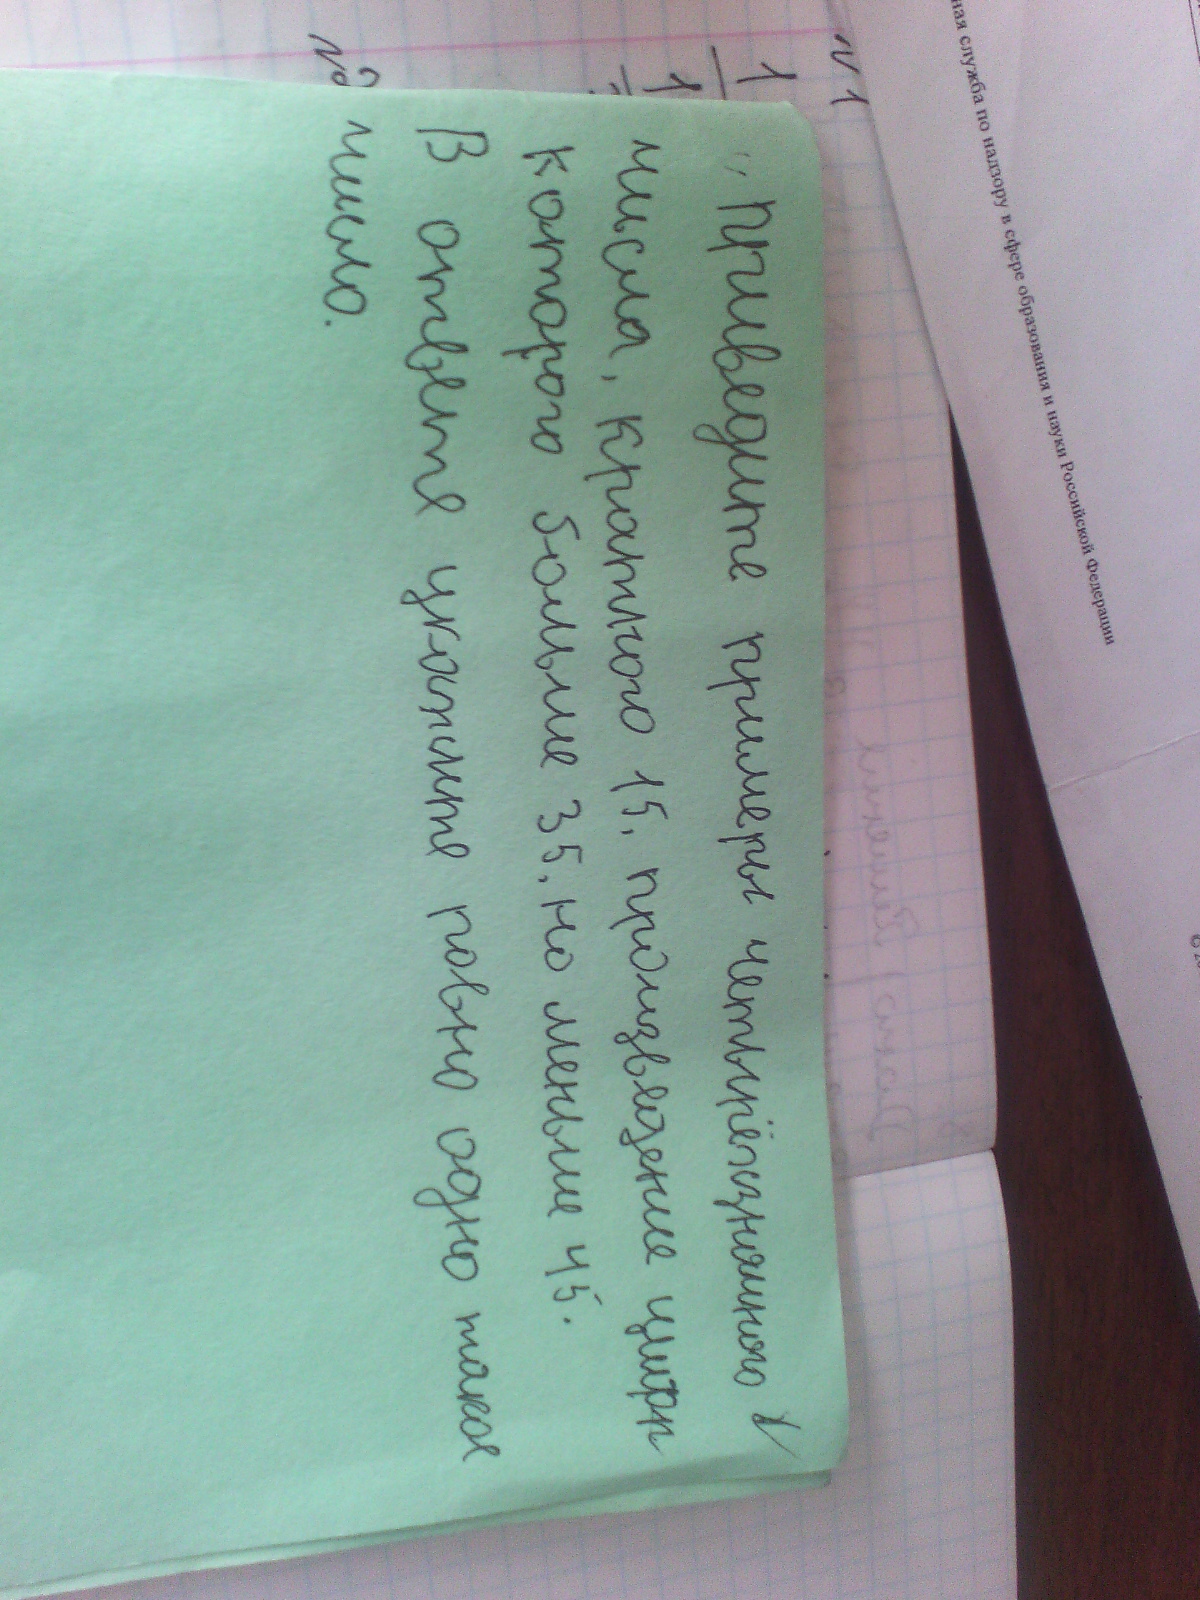 ная служба по надзору в сфере образования и науки Российской Федерации
№1
1
1
№2
"Приведите примеры четырёхзначного
числа, кратного 15, произведение цифр
которого больше 35, но меньше 45.
В ответе укажите ровно одно такое
число.